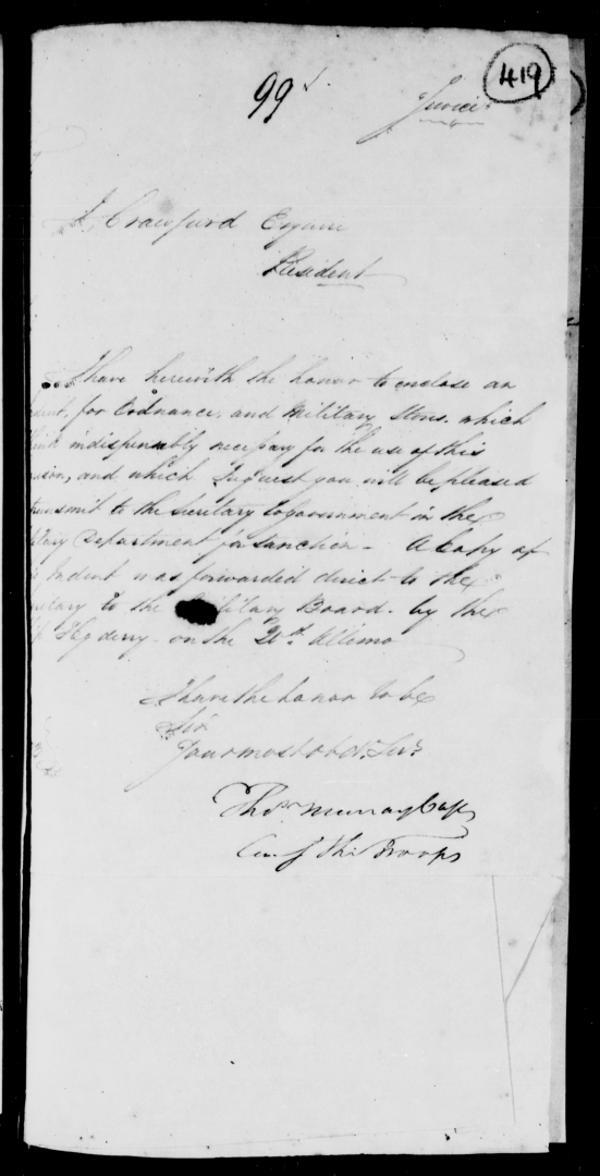 419
99
J. Crawfurd Esquire
Resident
I have herewith the honor to enclose an
for Ordnance, and Military Stores. which
indispensably necessary for the use of this
and which I request you will be pleased
transmit to the Secretary to government in the
Department for sanction - A Copy of
Indent was forwarded direct to the
to the Military Board - by the
on the 20th Ultimo
I have the honor to be
Sir
Your most obdt. Servt.
Thos. Murray Capt
Comg the Troops